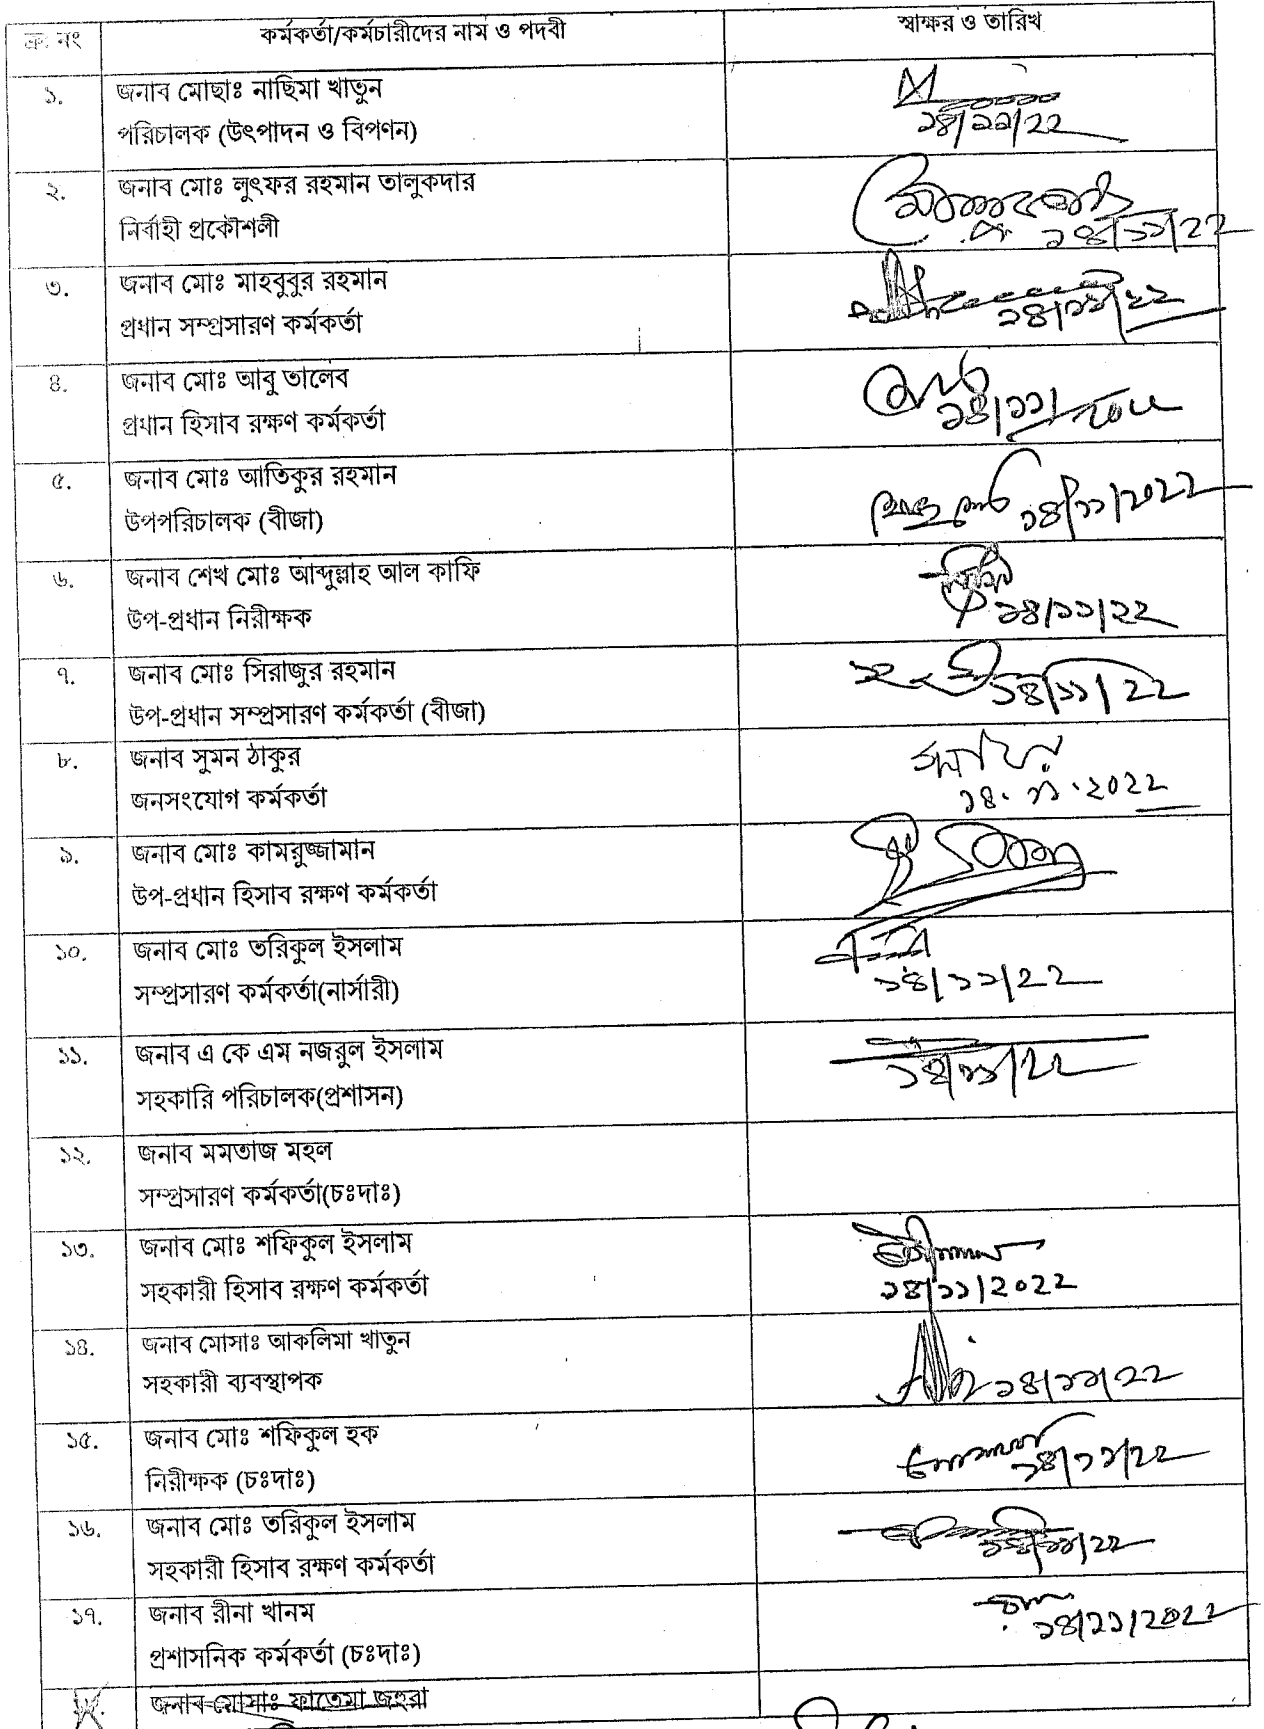 ক্র: নং কর্মকর্তা/কর্মচারীদের নাম ও পদবী স্বাক্ষর ও তারিখ
১. জনাব মোছাঃ নাছিমা খাতুন
পরিচালক (উৎপাদন ও বিপণন) ১৪/১১/২২
২. জনাব মোঃ লুৎফর রহমান তালুকদার
নির্বাহী প্রকৌশলী ১৪/১১/২২
৩. জনাব মোঃ মাহবুবুর রহমান
প্রধান সম্প্রসারণ কর্মকর্তা ১৪/১১/২২
৪. জনাব মোঃ আবু তালেব
প্রধান হিসাব রক্ষণ কর্মকর্তা ১৪/১১/
৫. জনাব মোঃ আতিকুর রহমান
উপপরিচালক (বীজা) ১৪/১১/২০২২
৬. জনাব শেখ মোঃ আব্দুল্লাহ আল কাফি
উপ-প্রধান নিরীক্ষক ১৪/১১/২২
৭. জনাব মোঃ সিরাজুর রহমান
উপ-প্রধান সম্প্রসারণ কর্মকর্তা (বীজা) ১৪/১১/২২
৮. জনাব সুমন ঠাকুর
জনসংযোগ কর্মকর্তা ১৪.১১.২০২২
৯. জনাব মোঃ কামরুজ্জামান
উপ-প্রধান হিসাব রক্ষণ কর্মকর্তা
১০. জনাব মোঃ তরিকুল ইসলাম
সম্প্রসারণ কর্মকর্তা(নার্সারী) ১৪/১১/২২
১১. জনাব এ কে এম নজরুল ইসলাম
সহকারি পরিচালক(প্রশাসন) ১৪/১১/২২
১২. জনাব মমতাজ মহল
সম্প্রসারণ কর্মকর্তা(চঃদাঃ)
১৩. জনাব মোঃ শফিকুল ইসলাম
সহকারী হিসাব রক্ষণ কর্মকর্তা ১৪/১১/২০২২
১৪. জনাব মোসাঃ আকলিমা খাতুন
সহকারী ব্যবস্থাপক ১৪/১১/২২
১৫. জনাব মোঃ শফিকুল হক
নিরীক্ষক (চঃদাঃ) ১৪/১১/২২
১৬. জনাব মোঃ তরিকুল ইসলাম
সহকারী হিসাব রক্ষণ কর্মকর্তা ১৪/১১/২২
১৭. জনাব রীনা খানম
প্রশাসনিক কর্মকর্তা (চঃদাঃ) ১৪/১১/২০২২
জনাব মোসাঃ ফাতেমা জহুরা